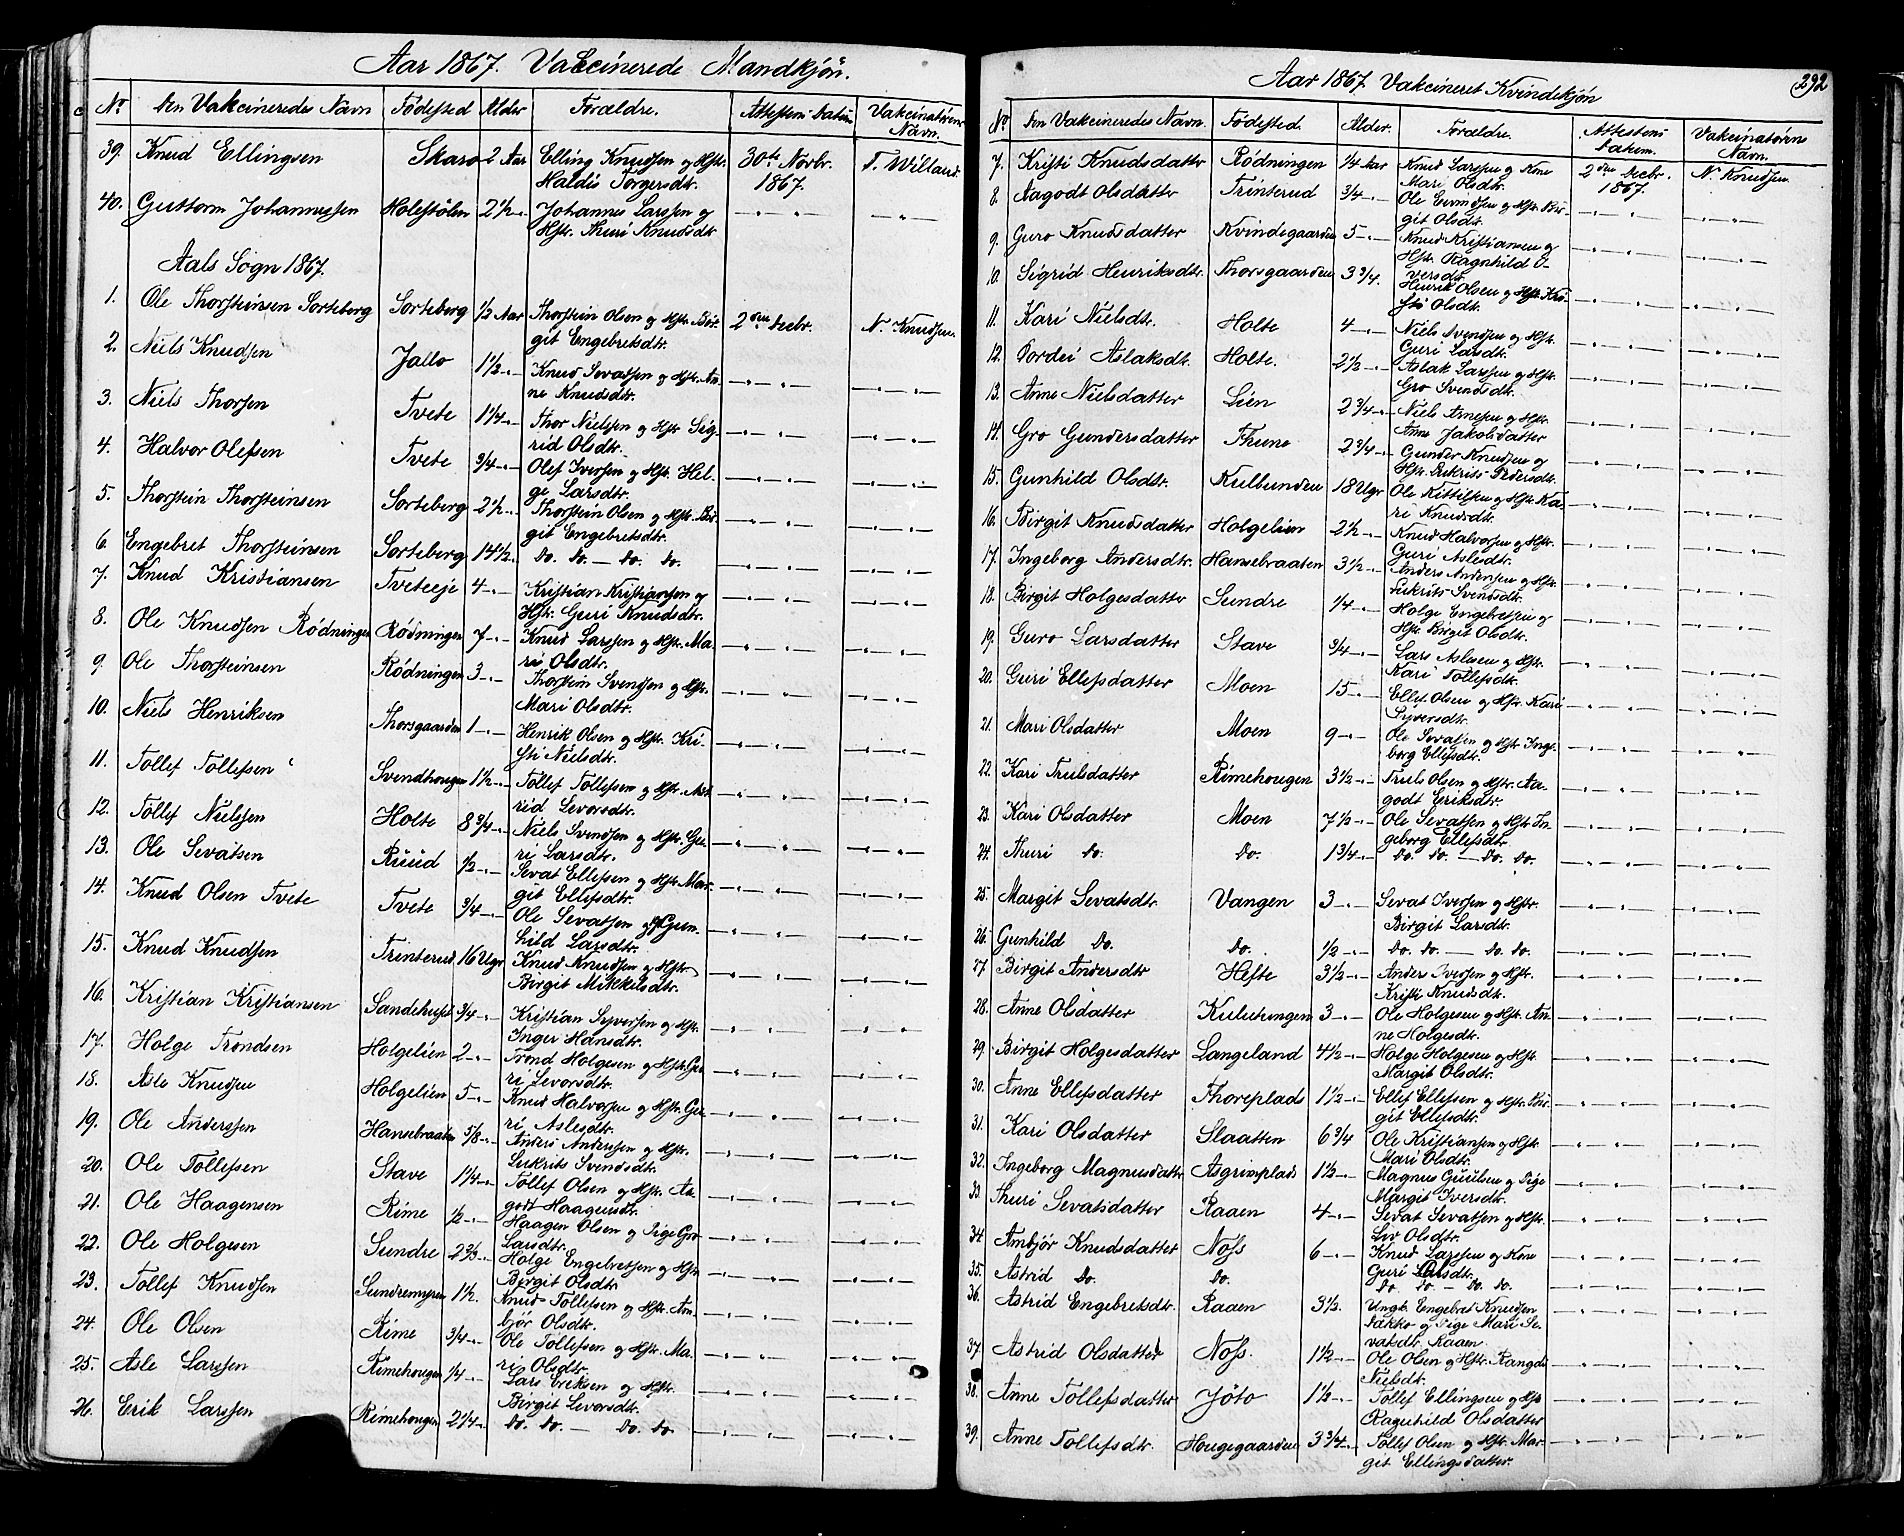 Aar 1867. Vaccinerede Mandkjøn.
No Den Vakcineredes Navn Fødested Alder Forældre. Attestens Datum Vakcinatørens Navn.
39. Knud Ellingsen Skaro 2 Aar Elling Knudsen og Hstr. 30te Novbr. T. Villand
Haldis Torgersdtr. 1867.
40. Guttorm Johannessen Holestølen 2½ -"- Johannes Larssen og
Hstr. Thuri Knudsdtr
Aals Sogn 1867.
1. Ole Thorsteinsen Sorteberg Sorteberg ½ Aar Thorstein Olsen og Hstr. Bir- 2den Decbr. N. Knudsen
git Engebretsdtr.
2. Niels Knudsen Jallo 1½ -"- Knud Sevatsen og Hstr. An-
ne Knudsdtr.
3. Niels Thorsen Tvete 1¼ -"- Thor Nielsen og Hstr. Sig-
rid Olsdtr.
4. Halvor Olefsen Tvete ¾ -"- Olef Iversen og Hstr. Hel-
ge Larsdtr.
5. Thorstein Thorsteinsen Sorteberg 2½ -"- Thorstein Olsen og Hstr. Bir-
git Engebretsdtr.
6. Engebret Thorsteinsen Sorteberg 14½ -"- Do. Do. — Do. Do.
7. Knud Kristiansen Tveteeje 4 -"- Kristian Kristiansen og
Hstr. Guri Knudsdtr.
8. Ole Knudsen Rødningen Rødningen 7 -"- Knud Larssen og Hstr. Ma-
ri Olsdtr.
9. Ole Thorsteinsen Rødningen 3 -"- Thorstein Svendsen og Hstr.
Mari Olsdtr.
10. Niels Henriksen Thorsgaarden 1 -"- Henrik Olsen og Hstr. Kri-
sti Nielsdtr.
11. Tollef Tollefsen Svendhougen 1½ -"- Tollef Tollefsen og Hstr. Ast-
rid Levorsdtr.
12. Tollef Nielsen Holte 8¾ -"- Niels Svendsen og Hstr. Gu-
ri Larsdtr.
13. Ole Sevatsen Ruud ½ -"- Sevat Ellefsen og Hstr. Mar-
git Ellefsdtr.
14. Knud Olsen Tvete Tvete ¾ -"- Ole Sevatsen og Gun-
hild Larsdtr.
15. Knud Knudsen Trinterud 16 Ugr Knud Knudsen og Hstr
Birgit Mikkelsdtr.
16. Kristian Kristiansen Sandehuset ¾ -"- Kristian Syversen og Hstr.
Inger Hansdtr.
17. Holge Trondsen Holgelien 2 -"- Trond Holgesen og Hstr. Gu-
ri Levorsdtr.
18. Asle Knudsen Holgelien 5 -"- Knud Halvorsen og Hstr. Gu-
ri Aslesdtr.
19. Ole Anderssen Hansebraaten 5/8 -"- Anders Anderssen og Hstr.
Sukrits Svendsdtr.
20. Ole Tollefsen Stave 1¼ -"- Tollef Olsen og Hstr. Aa-
godt Haagensdtr.
21. Ole Haagensen Rime ½ -"- Haagen Olsen og Pige Gro
Larsdtr.
22. Ole Holgesen Sundre 2⅔ -"- Holge Engebretsen og Hstr
Birgit Olsdtr.
23. Tollef Knudsen Sundremyren 1½. Knud Tollefsen og Hstr. Am-
bjør Olsdtr.
24. Ole Olsen Rime ¾ -"- Ole Tollefsen og Hstr. Ma-
ri Olsdtr.
25. Asle Larssen Rimehougen ¼ -"- Lars Eriksen og Hstr.
Birgit Levorsdtr.
26. Erik Larssen Rimehougen 2¼ -"- Do. Do. — Do. Do
Aar 1867. Vakcineret Kvindekjøn 292
No Den Vakcineredes Navn. Fødested. Alder. Forældre. Attestens Datum. Vakcinatørens Navn.
7. Kristi Knudsdatter Rødningen ¼ Aar Knud Larssen og Kone 2den Decbr. N. Knudsen.
Mari Olsdtr. 1867.
8. Aagodt Olsdatter Trinterud ¾ -"- Ole Hstr. Bir-
git Olsdtr.
9. Guro Knudsdatter Kvindegaarden 5 -"- Knud Kristiansen og
Hstr. Ragnhild O-
versdtr.
10. Sigrid Henriksdtr. Thorsgaarden 3¾. Henrik Olsen og Hstr. Kri-
sti Olsdtr.
11. Kari Nielsdtr. Holte 4 -"- Niels Svendsen og Hstr.
Guri Larsdtr.
12. Pordei Aslaksdtr. Holte. 2½ -"- Aslak Larssen og Hstr.
Gro Svendsdtr.
13. Anne Nielsdatter Lien 2¾ -"- Niels Arnesen og Hstr.
Anne Jakobsdatter
14. Gro Gundersdatter Thune 2¾ -"- Gunder Knudsen og
Hstr. Sukrits Pedersdtr.
15. Gunhild Olsdtr. Kulbunden 18 Ugr Ole Kittilsen og Hstr. Ka-
ri Knudsdtr.
16. Birgit Knudsdatter Holgelien 2½ -"- Knud Halvorsen og Hstr.
Guri Aslesdtr.
17. Ingeborg Andersdtr. Hansebraaten 3½ -"- Anders Andersen og Hstr.
Sukrits Svendsdtr.
18. Birgit Holgesdatter Sundre ¼ -"- Holge Engebretsen og
Hstr. Birgit Olsdtr.
19. Guro Larsdatter Stave ¾ -"- Lars Aslesen og Hstr.
Kari Tollefsdtr.
20. Guri Ellefsdatter Moen 15 -"- Ellef Olsen og Hstr. Kari
Syversdtr.
21. Mari Olsdatter Moen 9 -"- Ole Sevatsen og Hstr Inge-
borg Ellefsdtr.
22. Kari Trulsdatter Rimehougen 3½ -"- Truls Olsen og Hstr. Aa-
godt Eriksdtr.
23. Kari Olsdatter Moen 7½ -"- Ole Sevatsen og Hstr. In-
geborg Ellefsdtr.
24. Thuri Do. Do. 1¾ -"- Do. Do. — Do. Do.
25. Margit Sevatsdtr. Vangen 3 -"- Sevat Iversen og Hstr.
Birgit Larsdtr.
26. Gunhild Do. Do. ½ -"- Do. Do. — Do. Do.
27 Birgit Andersdtr Hefte 3½ -"- Anders Iversen og Hstr.
Kristi Knudsdtr.
28. Anne Olsdatter Kuluhougen 3 -"- Ole Holgesen og Hstr. An-
ne Holgesdtr.
29. Birgit Holgesdatter Langeland 4½ -"- Holge Holgesen og Hstr.
Margit Olsdtr.
30. Anne Ellefsdatter Thoreplads 1½ -"- Ellef Ellefsen og Hstr. Bir-
git Ellefsdtr.
31. Kari Olsdatter Slaatten 6¾ Ole Kristiansen og Hstr.
Mari Olsdtr.
32. Ingeborg Magnusdattr Asgrimplads 1½ -"- Magnus Guulsen og Pige
Margit Iversdtr.
33. Thuri Sevatsdatter Raaen 4 -"- Sevat Sevatsen og Hstr.
Liv Olsdtr.
34 Ambjør Knudsdatter Noss 6 -"- Knud Larssen og Kone
Guri Olsdtr.
35. Astrid Do. Do. Do. Do. — Do. Do.
36. Astrid Engebretsdtr. Raaen 3½. Ungk. Engebret Knudsen
Dokko og Pige Mari Se-
vatsdtr Raaen.
37 Astrid Olsdatter Noss. 1½ -"- Ole Olsen og Hstr. Rangdi
Nielsdtr.
38. Anne Tollefsdatter Jöto 1½ -"- Tollef Ellingsen og Hstr
Ragnhild Olsdatter
39. Anne Tollefsdtr. Hougegaarden 3¾ -"- Tollef Olsen og Hstr. Mar-
git Ellingsdatter.